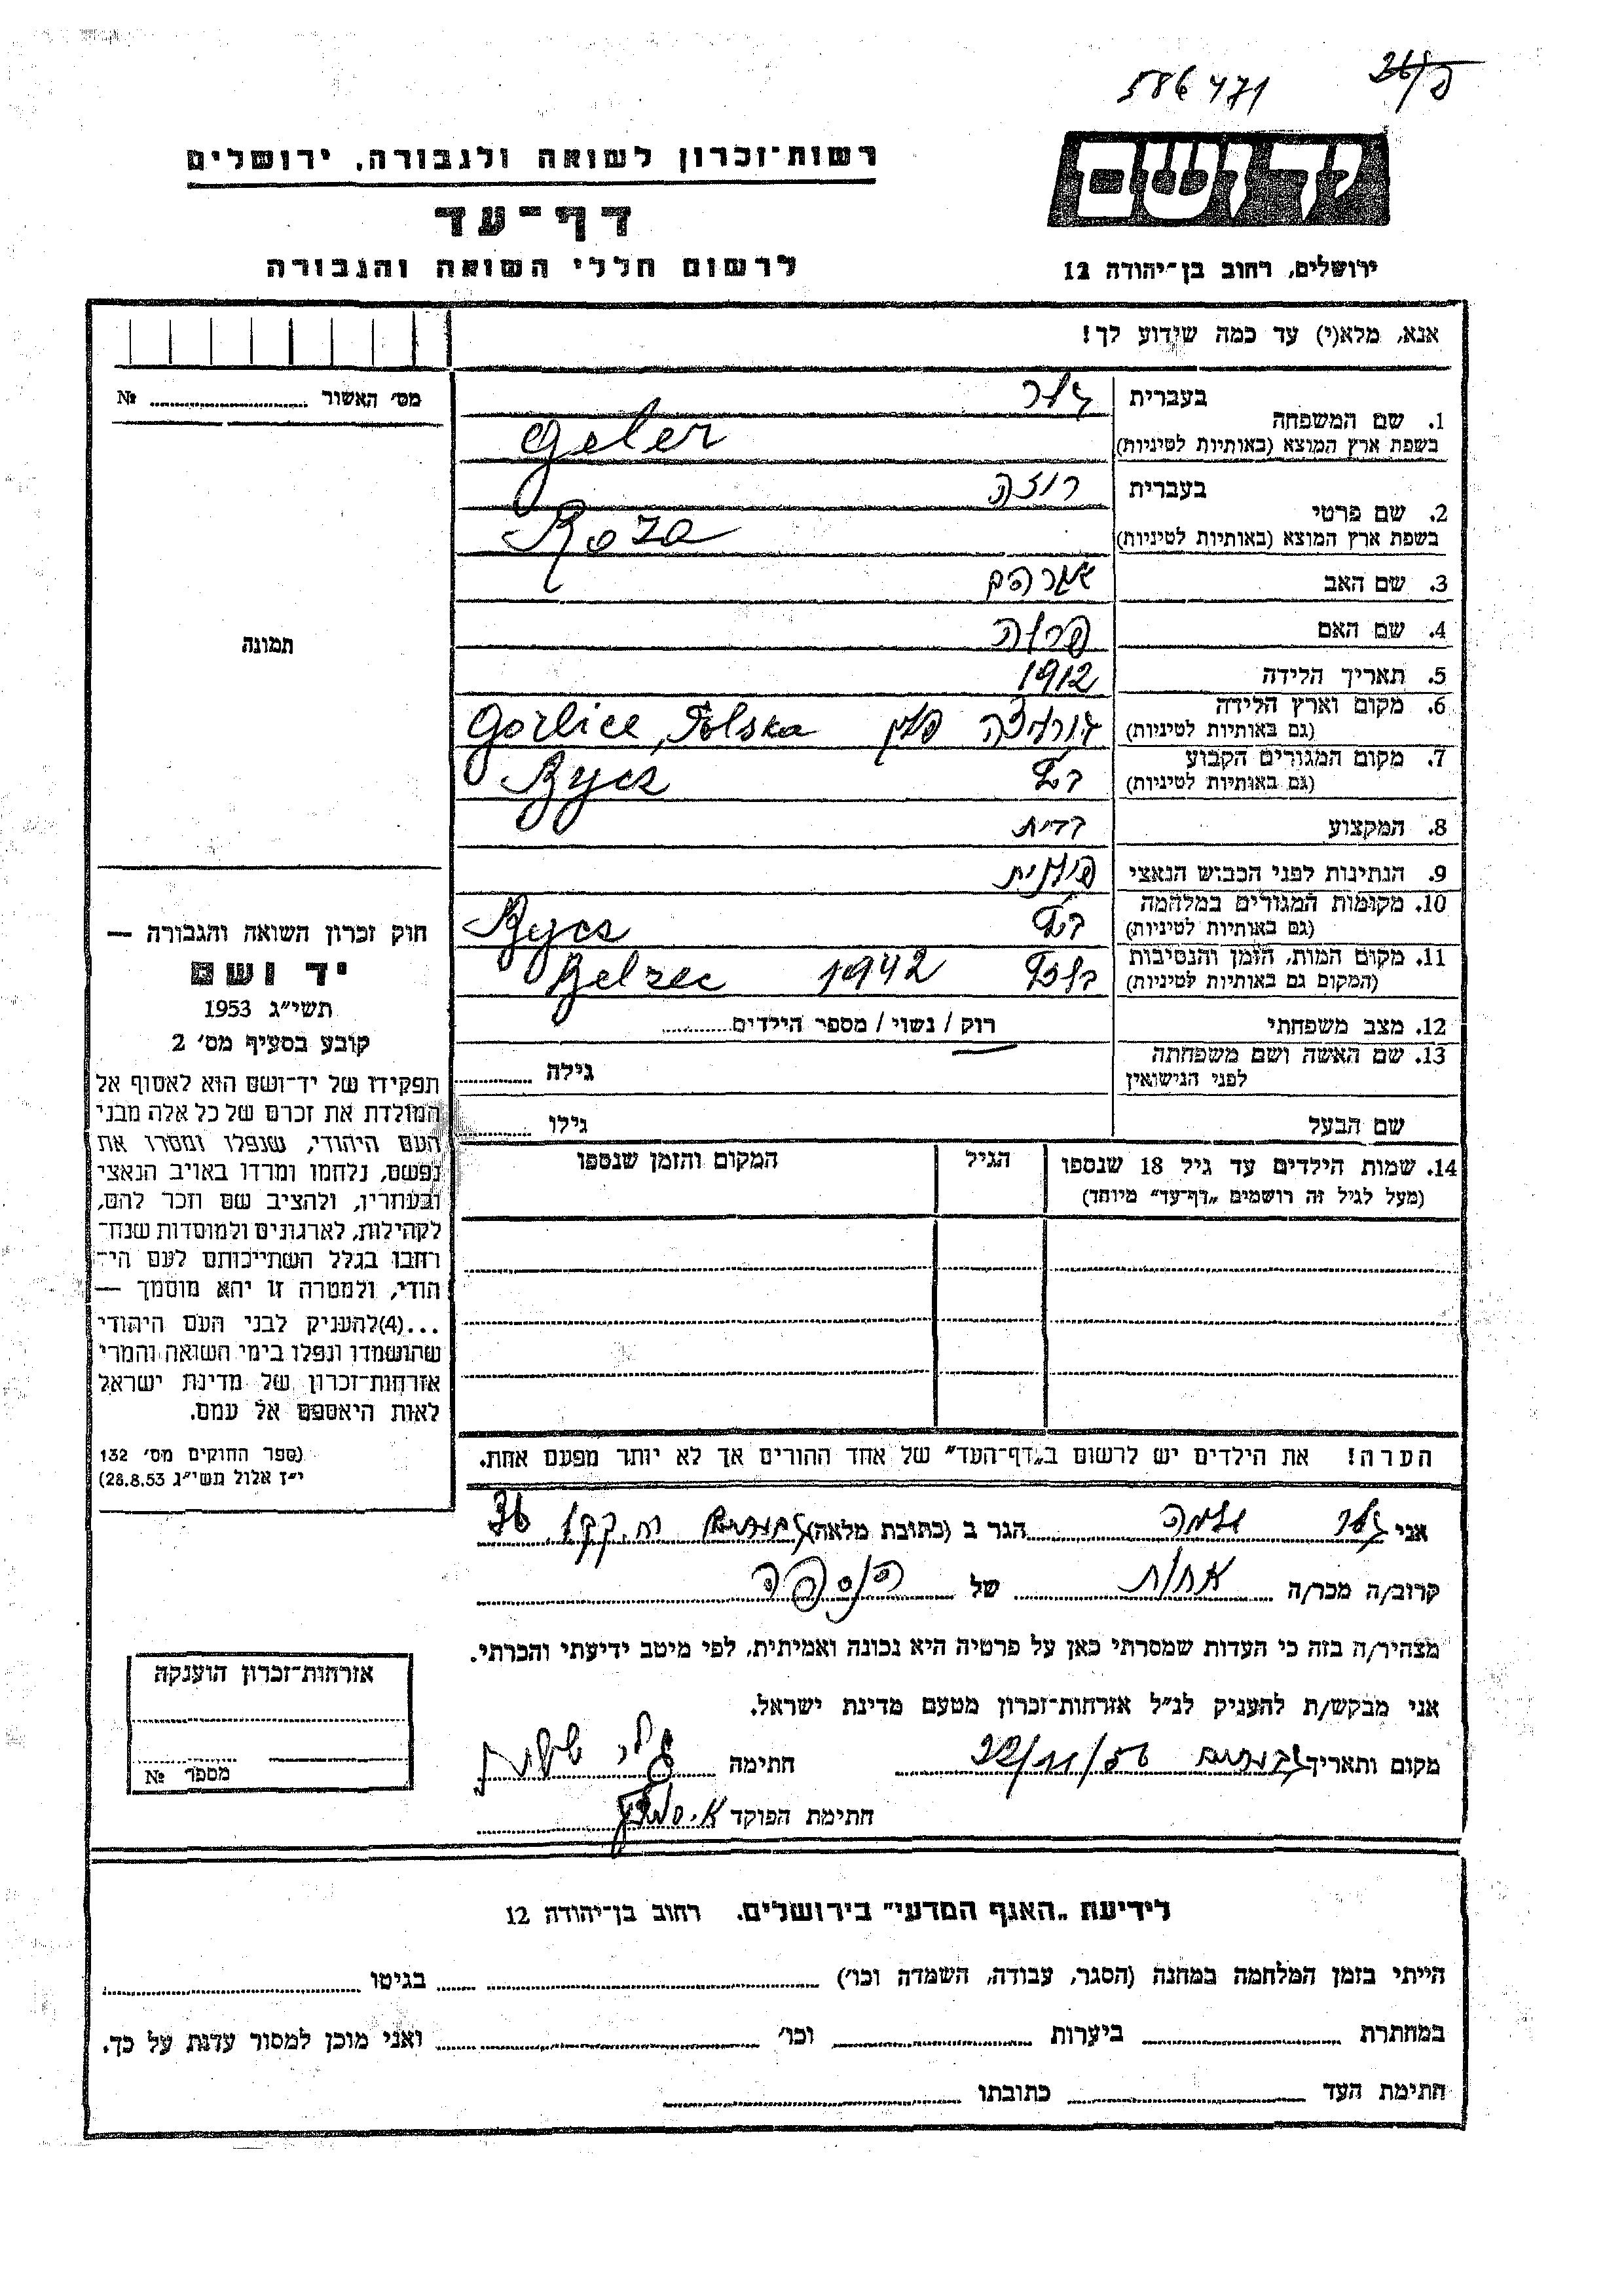 586471
יד ושם
רשות־זכרון לשואה ולגבורה, ירושלים
דף־עד
לרשום חללי השואה והגבורה
ירושלים, רחוב בן־יהודה 12
אנא, מלא(י) עד כמה שידוע לך!
מס׳ האשור № 
1. שם המשפחה בעברית גלר
בשפת ארץ המוצא (באותיות לטיניות) Geler
2. שם פרטי בעברית רוזה
בשפת ארץ המוצא (באותיות לטיניות) Roza
3. שם האב אברהם
4. שם האם
5. תאריך הלידה 1912
6. מקום וארץ הלידה (גם באותיות לטיניות) גורליצה פולין Gorlice, Polska
7. מקום המגורים הקבוע (גם באותיות לטיניות) Byecz
8. המקצוע
9. הנתינות לפני הכבוש הנאצי פולנית
10. מקומות המגורים במלחמה (גם באותיות לטיניות) Byecz
11. מקום המות, הזמן והנסיבות (המקום גם באותיות לטיניות) בלזץ 1942 Belzec
12. מצב משפחתי רוק / נשוי / מספר הילדים
13. שם האשה ושם משפחתה לפני הנישואין גילה
שם הבעל גילו
14. שמות הילדים עד גיל 18 שנספו הגיל המקום והזמן שנספו
(מעל לגיל זה רושמים „דף־עד״ מיוחד)
הערה! את הילדים יש לרשום ב„דף־העד״ של אחד ההורים אך לא יותר מפעם אחת.
תמונה
חוק זכרון השואה והגבורה —
יד ושם
תשי״ג 1953
קובע בסעיף מס׳ 2
תפקידו של יד־ושם הוא לאסוף אל
המולדת את זכרם של כל אלה מבני
העם היהודי, שנפלו ומסרו את
נפשם, נלחמו ומרדו באויב הנאצי
ובעוזריו, ולהציב שם וזכר להם,
לקהילות, לארגונים ולמוסדות שנח־
רבו בגלל השתייכותם לעם הי־
הודי, ולמטרה זו יהא מוסמך —
...(4)להעניק לבני העם היהודי
שהושמדו ונפלו בימי השואה והמרי
אזרחות־זכרון של מדינת ישראל
לאות היאספם אל עמם.
(ספר החוקים מס׳ 132
י״ז אלול תשי״ג 28.8.53)
אני גלר הגר ב (כתובת מלאה) 36
קרוב/ה מכר/ה אחות של הנספה
מצהיר/ה בזה כי העדות שמסרתי כאן על פרטיה היא נכונה ואמיתית, לפי מיטב ידיעתי והכרתי.
אני מבקש/ת להעניק לנ״ל אזרחות־זכרון מטעם מדינת ישראל.
מקום ותאריך 22/11/56 חתימה
חתימת הפוקד
אזרחות־זכרון הוענקה
מספר №
לידיעת „האגף המדעי״ בירושלים. רחוב בן־יהודה 12
הייתי בזמן המלחמה במחנה (הסגר, עבודה, השמדה וכו׳) בגיטו
במחתרת ביערות וכו׳ ואני מוכן למסור עדות על כך.
חתימת העד כתובתו